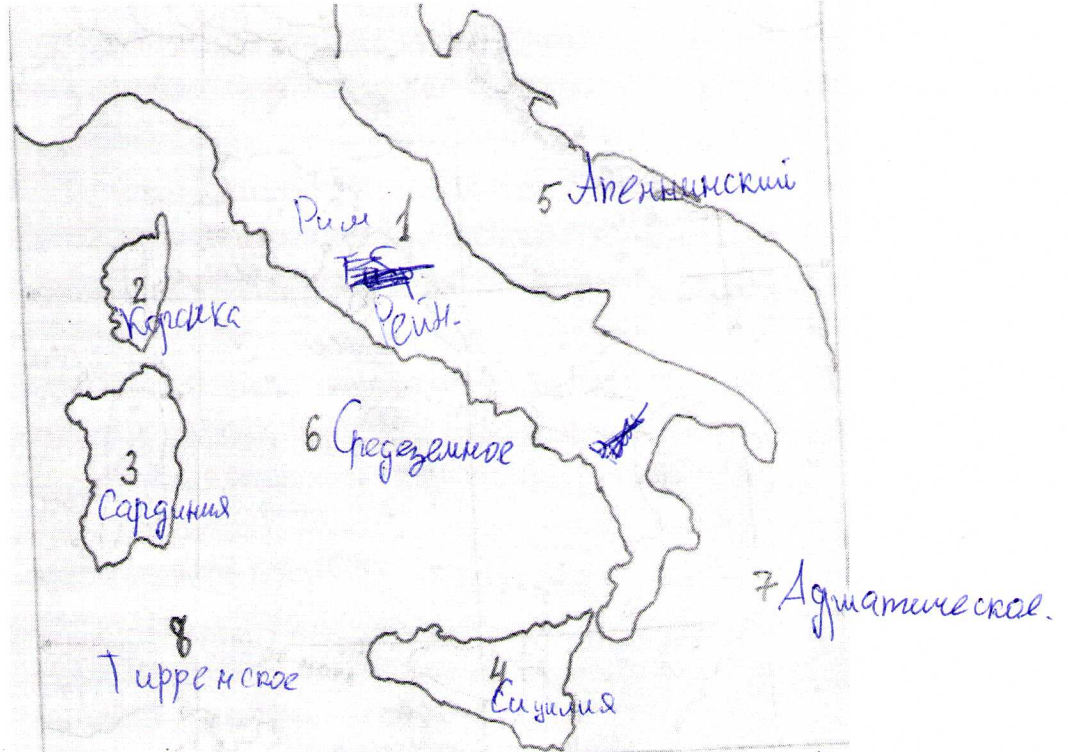 5 Апеннинский
Рим 1
Рейн.
2
Корсика
6 Средеземное
3
Сардиния
7 Адриатическое.
8
Тирренское
4
Сицилия